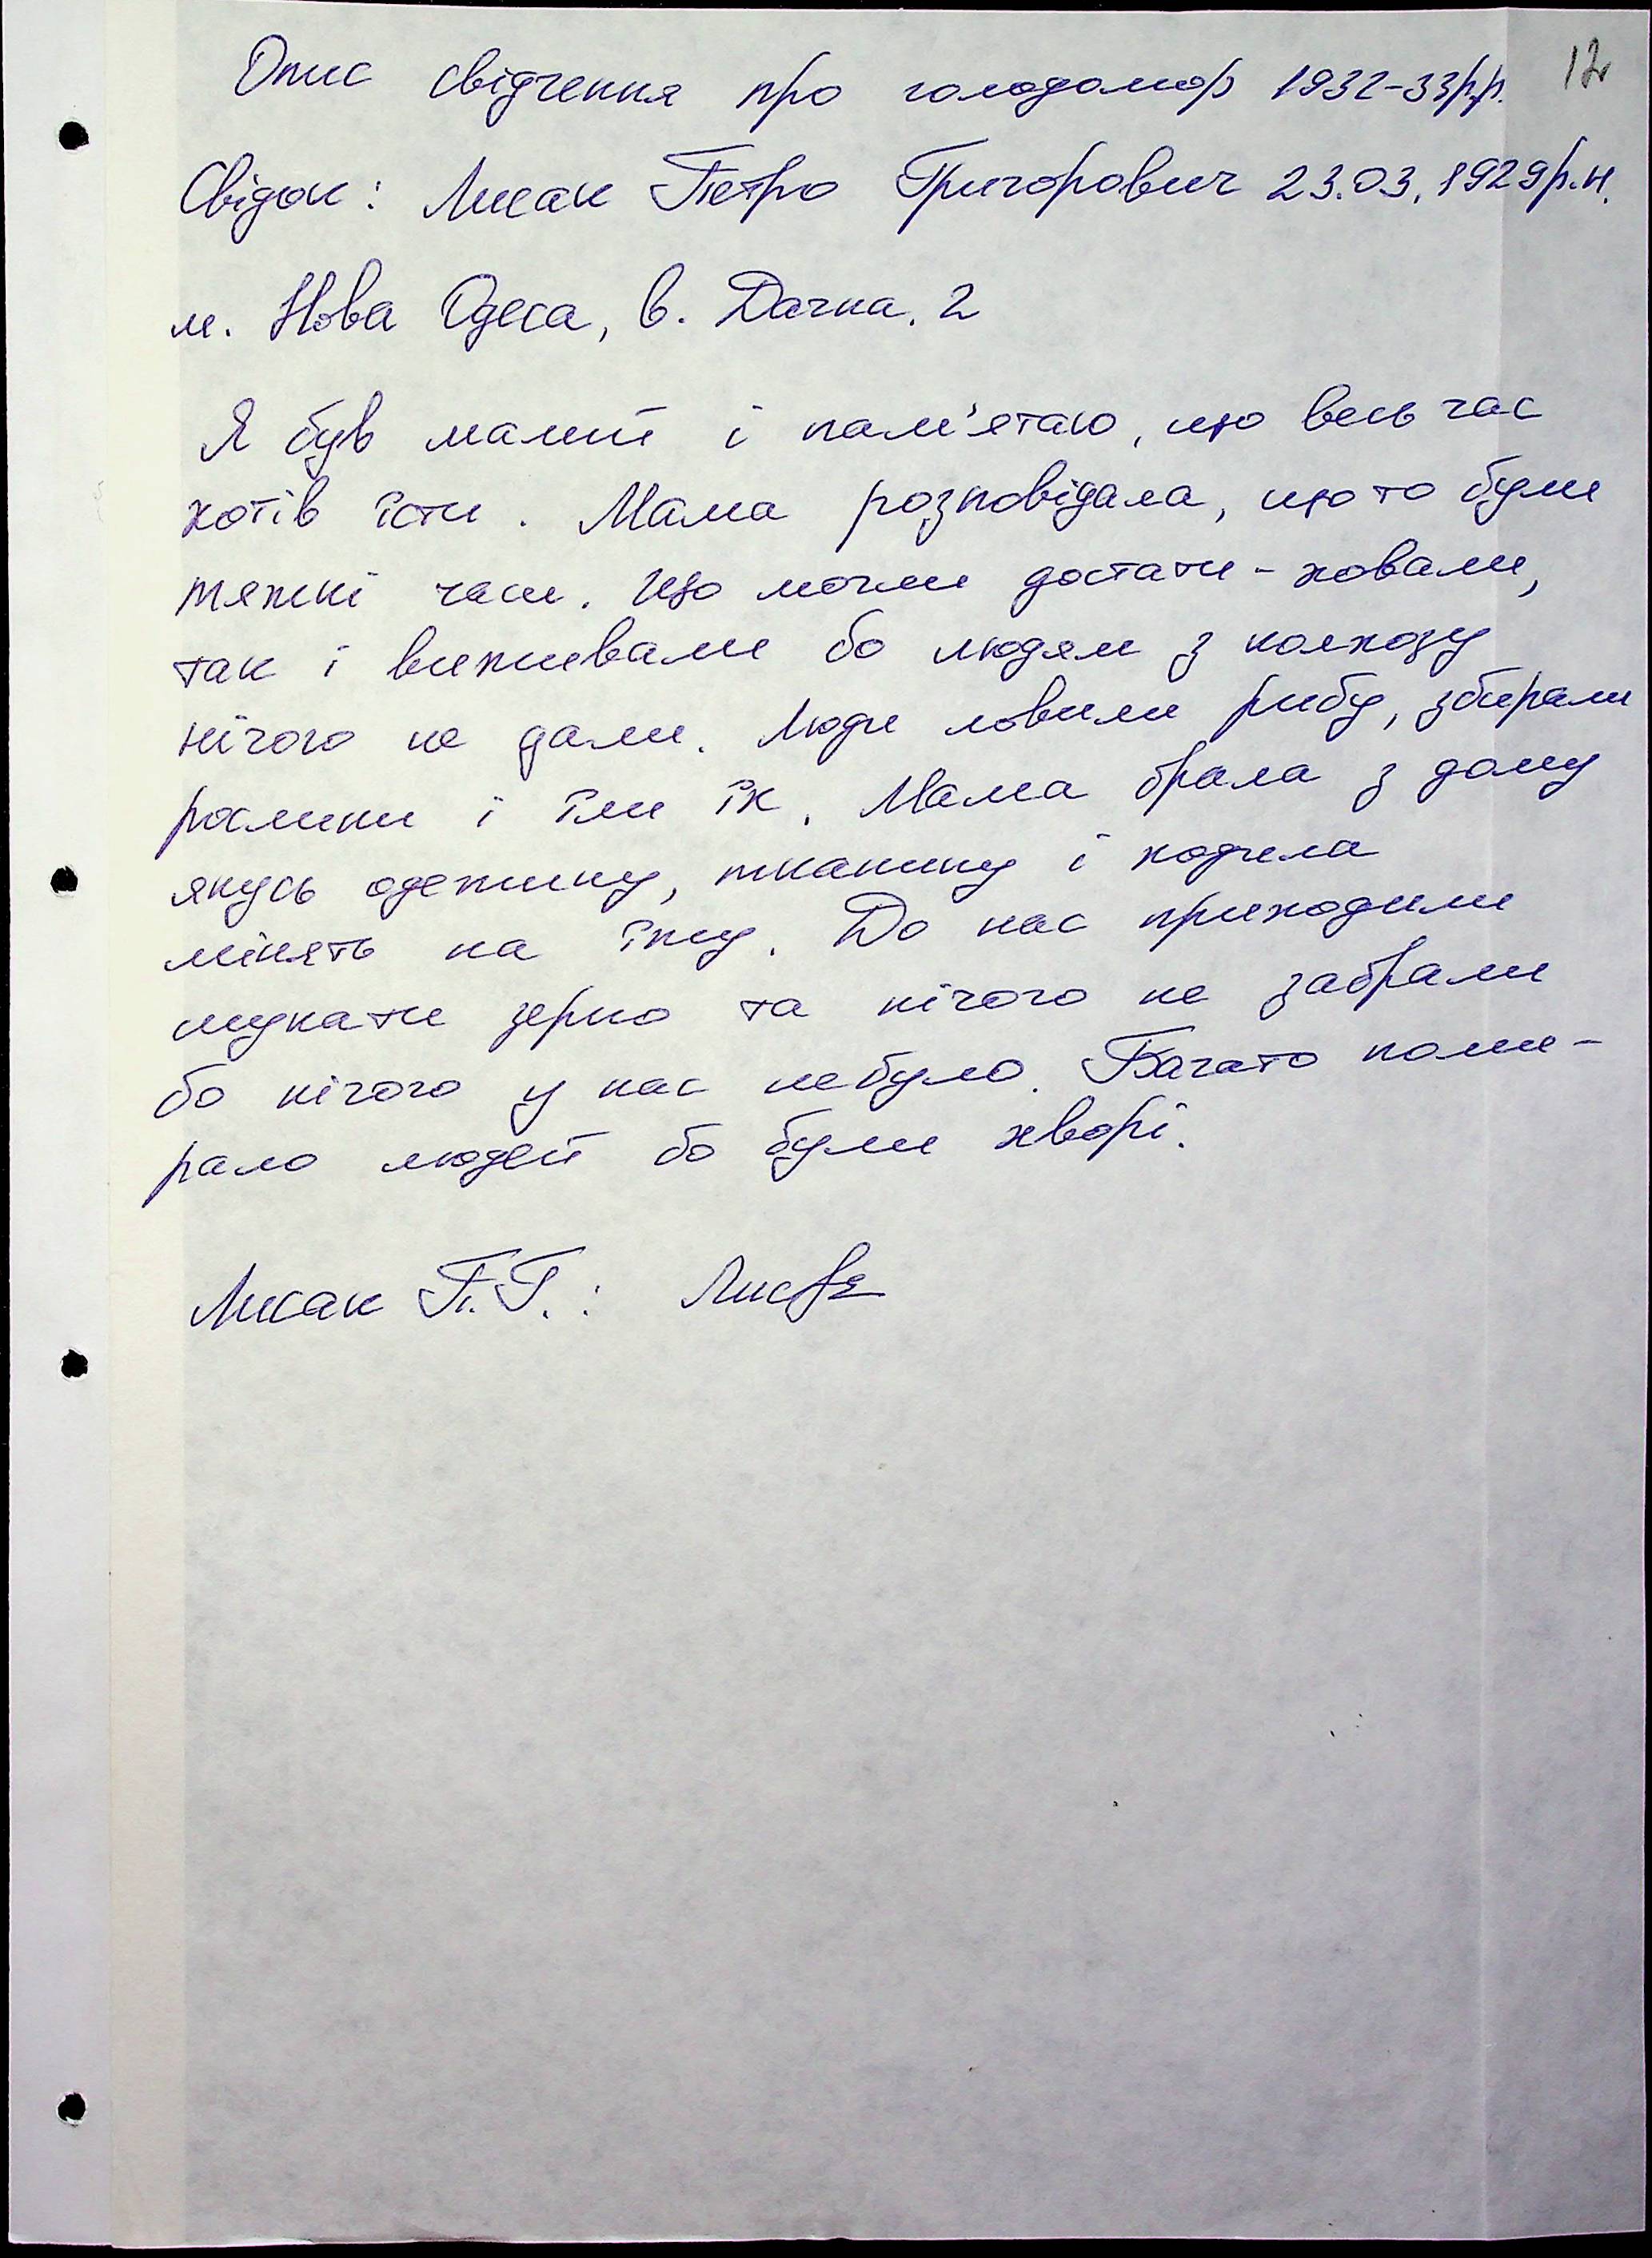 12
Опис свідчення про голодомор 1932-33р.р.
Свідок: Лисак Петро Григорович 23.03.1929р.н.
м. Нова Одеса, в. Дачна, 2
Я був малий і пам'ятаю, що весь час
хотів їсти. Мама розповідала, що то були
тяжкі часи. Що могли достати - ховали,
так і виживали бо людям з колхозу
нічого не дали. Люди ловили рибу, збирали
рослини і їли їх. Мама брала з дому
якусь одежину, тканину і ходила
мінять на їжу. До нас приходили
шукати зерно та нічого не забрали
бо нічого у нас не було. Багато поми-
рало людей бо були хворі.
Лисак П.Г.: